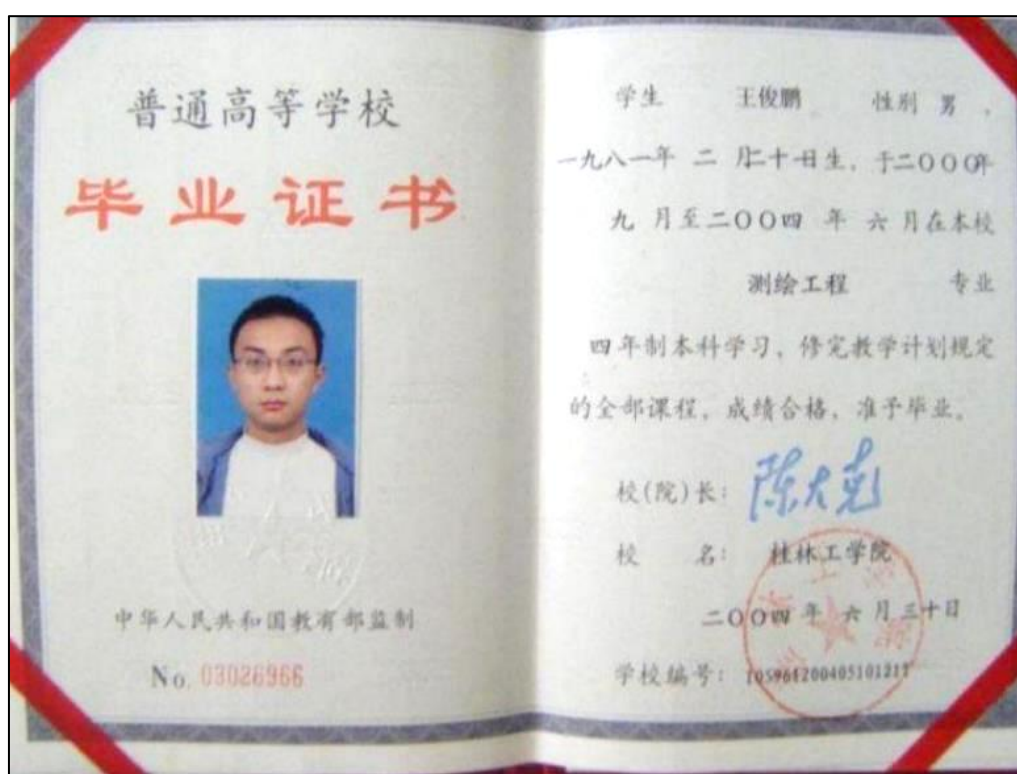 普通高等学校
毕业证书
中华人民共和国教育部监制
No. 03026966
学生 王俊鹏 性别 男，
一九八一年 二 月二十日生，于二〇〇〇年
九 月至二〇〇四 年 六 月在本校
测绘工程 专业
四年制本科学习，修完教学计划规定
的全部课程，成绩合格，准予毕业。
校(院)长：陈大克
校 名：桂林工学院
二〇〇四 年 六 月三十日
学校编号：105961200405101217